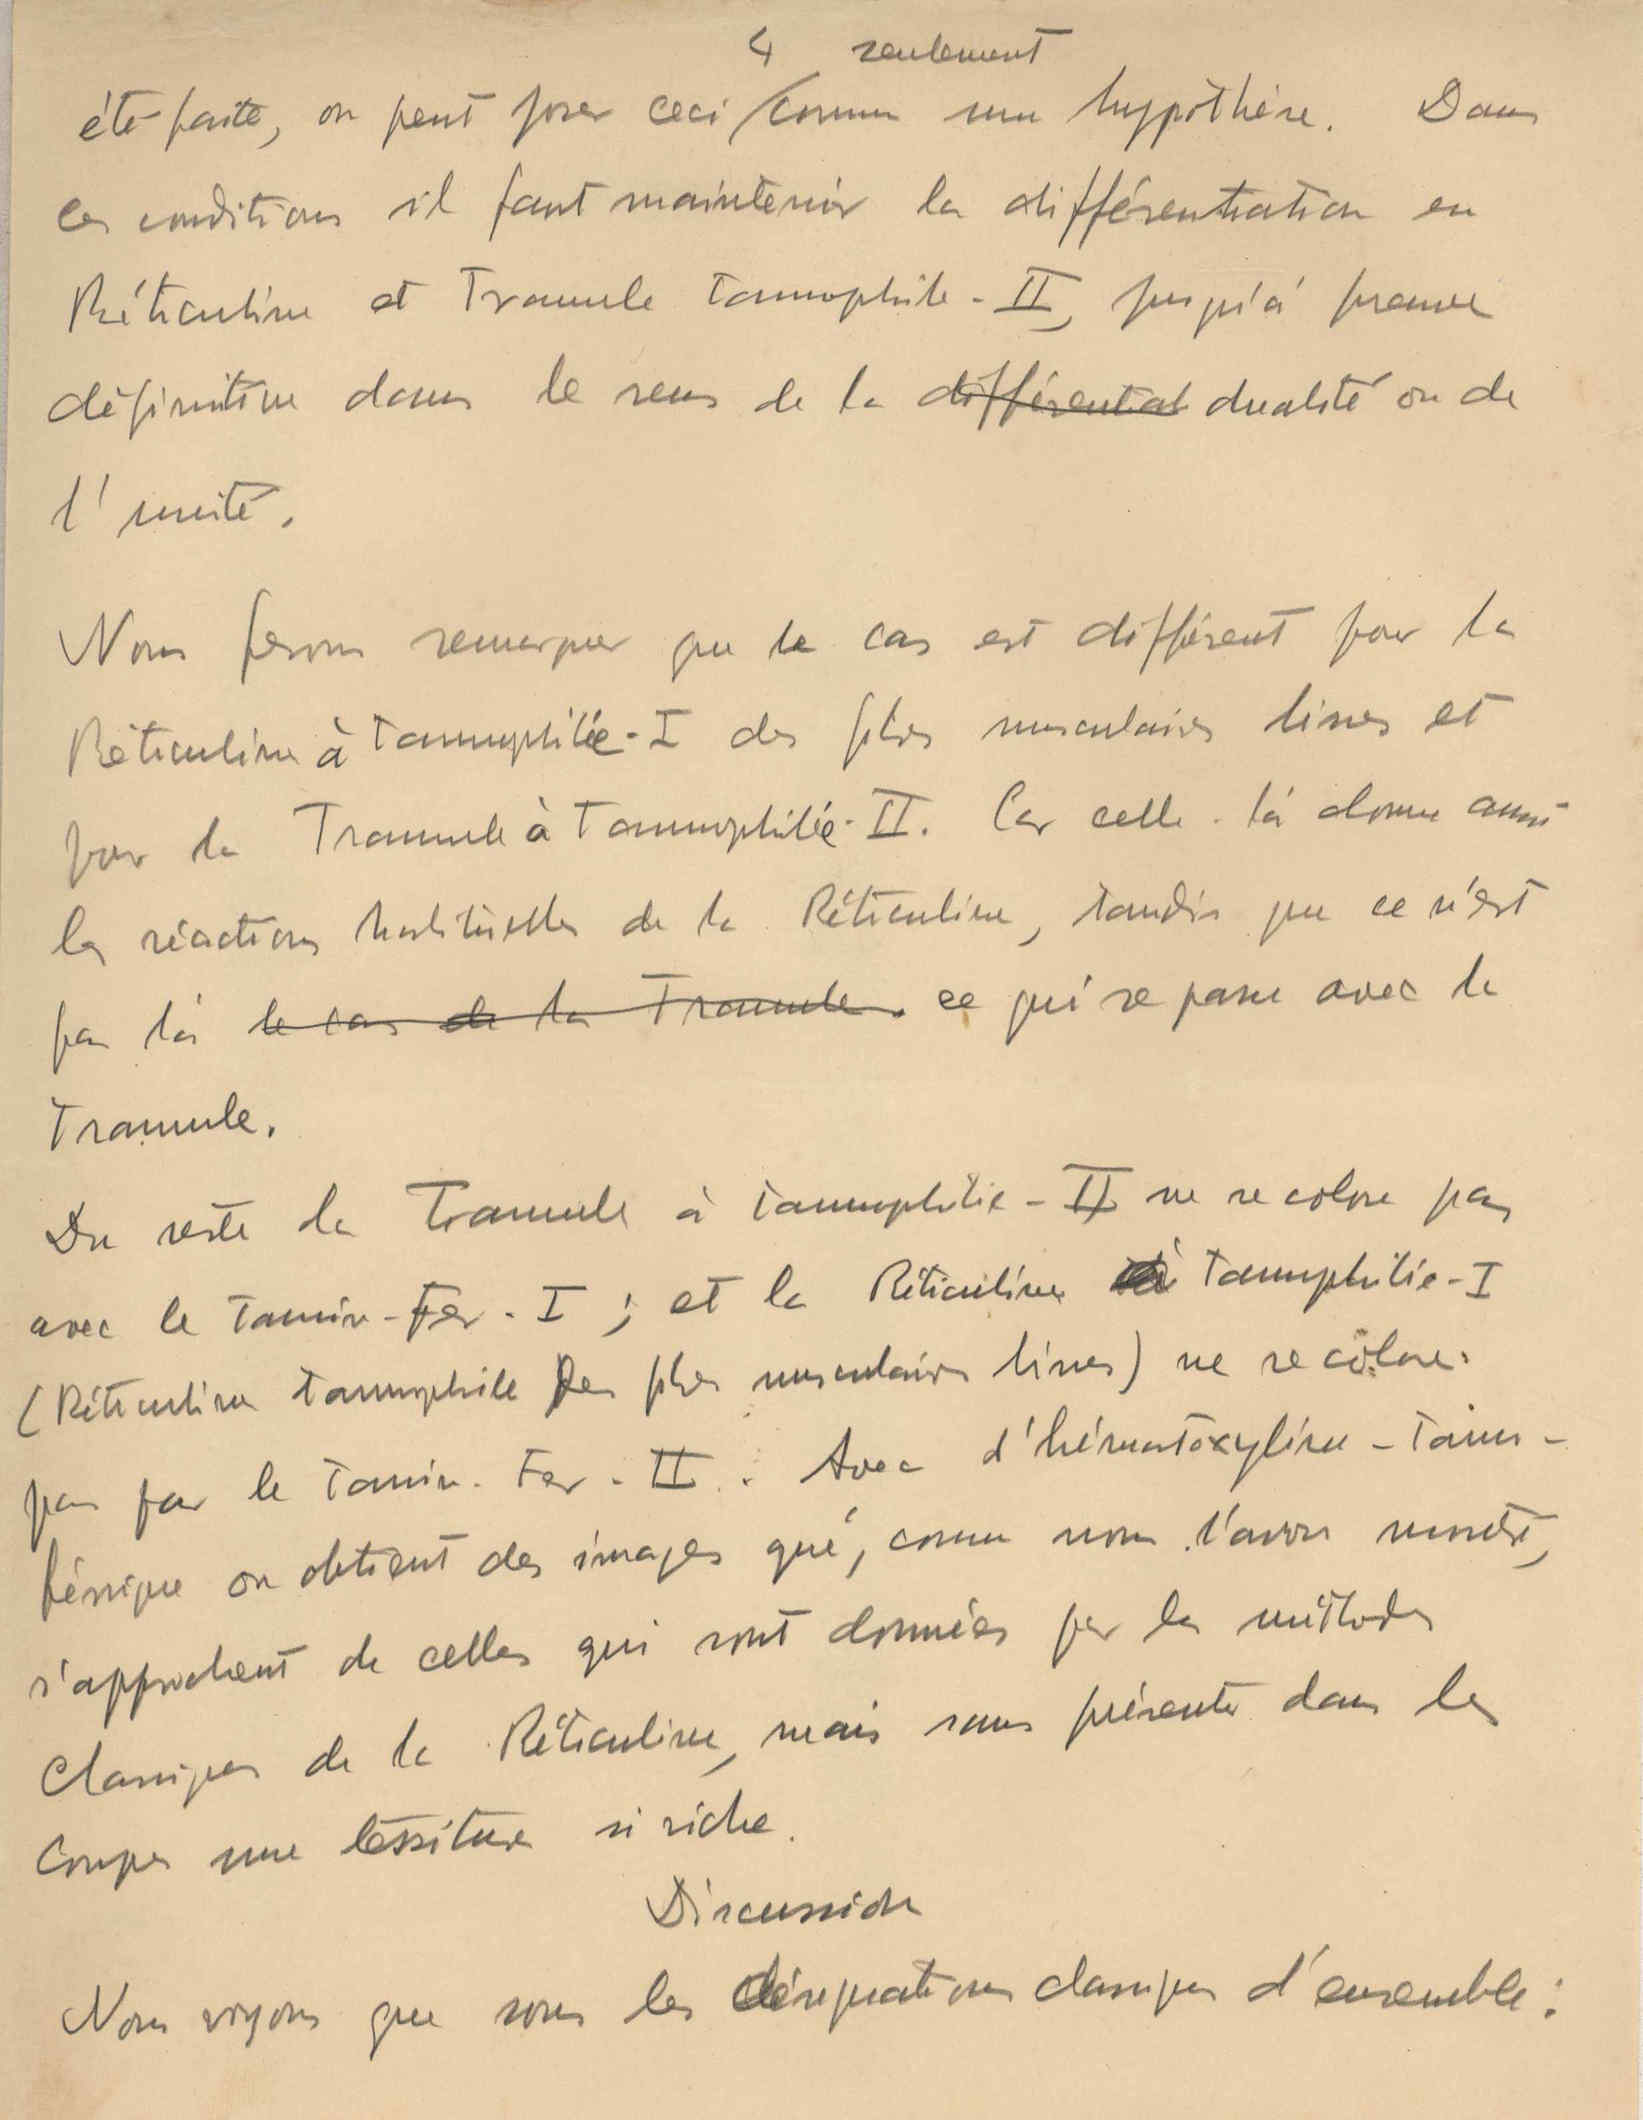 4 seulement
été faite, on peut poser ceci comme une hypothèse. Dans
ces conditions il faut maintenir la différentiation en
Réticuline et Tramule tannophile-II, jusqu'à preuve
définitive dans le sens de la différentiat dualité ou de
l'unité.
Nous ferons remarquer que le cas est différent pour la
Réticuline à Tannophilie-I des fibres musculaires lisses et
pour la Tramule à Tannophilie-II. Car celle-là donne aussi
les réactions habituelles de la Réticuline, tandis que ce n'est
pas là le cas de la Tramule. ce qui se passe avec la
Tramule.
Du reste la Tramule à tannophilie-II ne se colore pas
avec le Tannin-Fer-I; et la Réticuline à Tannophilie-I
(Réticuline tannophile des fibres musculaires lisses) ne se colore
pas par le Tannin-Fer-II. Avec l'hématoxyline-Tanno-
ferrique on obtient des images qui, comme nous l'avons montré,
s'approchent de celles qui sont données par les méthodes
classiques de la Réticuline, mais sans présenter dans les
coupes une tessiture si riche.
Discussion
Nous voyons que sous les désignations classiques d'ensemble: